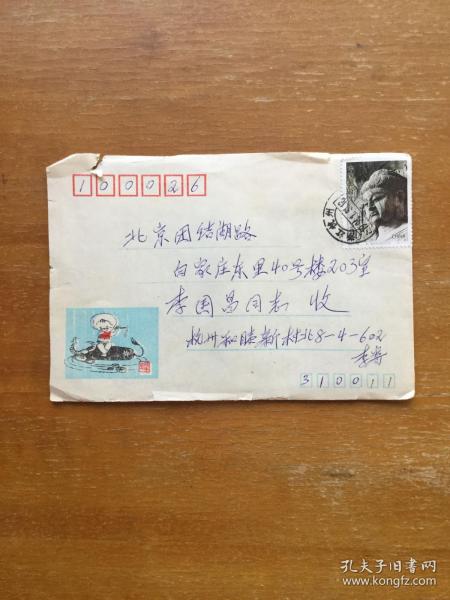 100026
北京团结湖路
白家庄东里40号楼203室
李国昌同志 收
杭州和睦新村北8-4-602
李寄
310011
孔夫子旧书网
www.kongfz.com